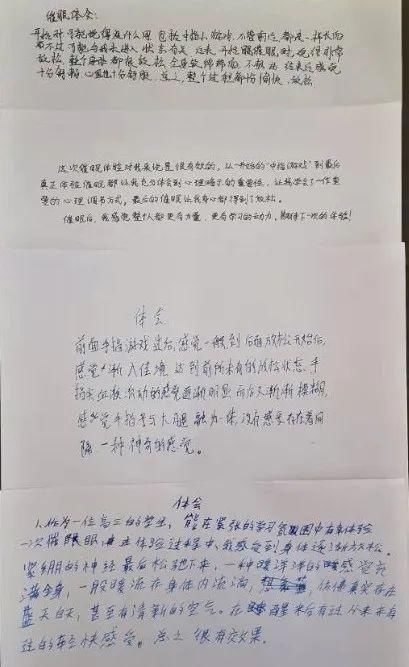 催眠体会：
开始时可能觉得没什么用 包括手指小游戏，不管前后都是一样长而
不过可能
进入状态
后来，开始睡催眠时，觉得非常
放松，整个身体都很放松，全身软绵绵的，不想动，结束后感觉
十分舒畅，心里十分舒服，总之，整个过程都怡愉快、放松
这次催眠体验对我来说是很有效的，从一开始的“中指游戏”到最后
真正体验催眠都让我充分体会到心理暗示的重要性，让我学会了一个重
要的心理调节方式，最后的催眠让我身心都得到了放松。
催眠后，我感觉整个人都更有力量，更有学习的动力，期待下一次的体验！
体会
前面手指游戏过后，感觉一般，到后面放松开始后，
感觉渐入佳境，达到前所未有的放松状态，手
指尖血液流动的感觉逐渐明显而后又渐渐模糊，
感觉手指与大腿融为一体，没有感受存在着间
隙，一种神奇的感觉。
体会
人作为一位高三的学生，能在紧张的学习氛围中有幸体验
一次催眠，在体验过程中，我感受到身体逐渐放松，
紧绷的神经最后松弛下来，一种暖洋洋的感觉充
满全身，一股暖流在身体内流淌，仿佛真实存在
蓝天白天，甚至有清新的空气。在醒来后有过从来未有
过的轻快感觉。总之很有效果。